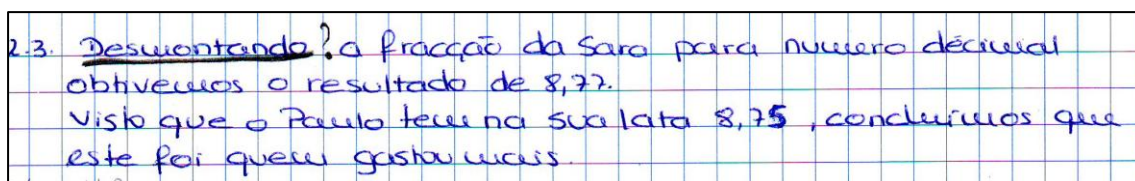 2.3. Desmontando? a fracção da Sara para numero décimal
obtivemos o resultado de 8,77.
Visto que o Paulo tem na sua lata 8,75, concluimos que
este foi quem gastou mais.